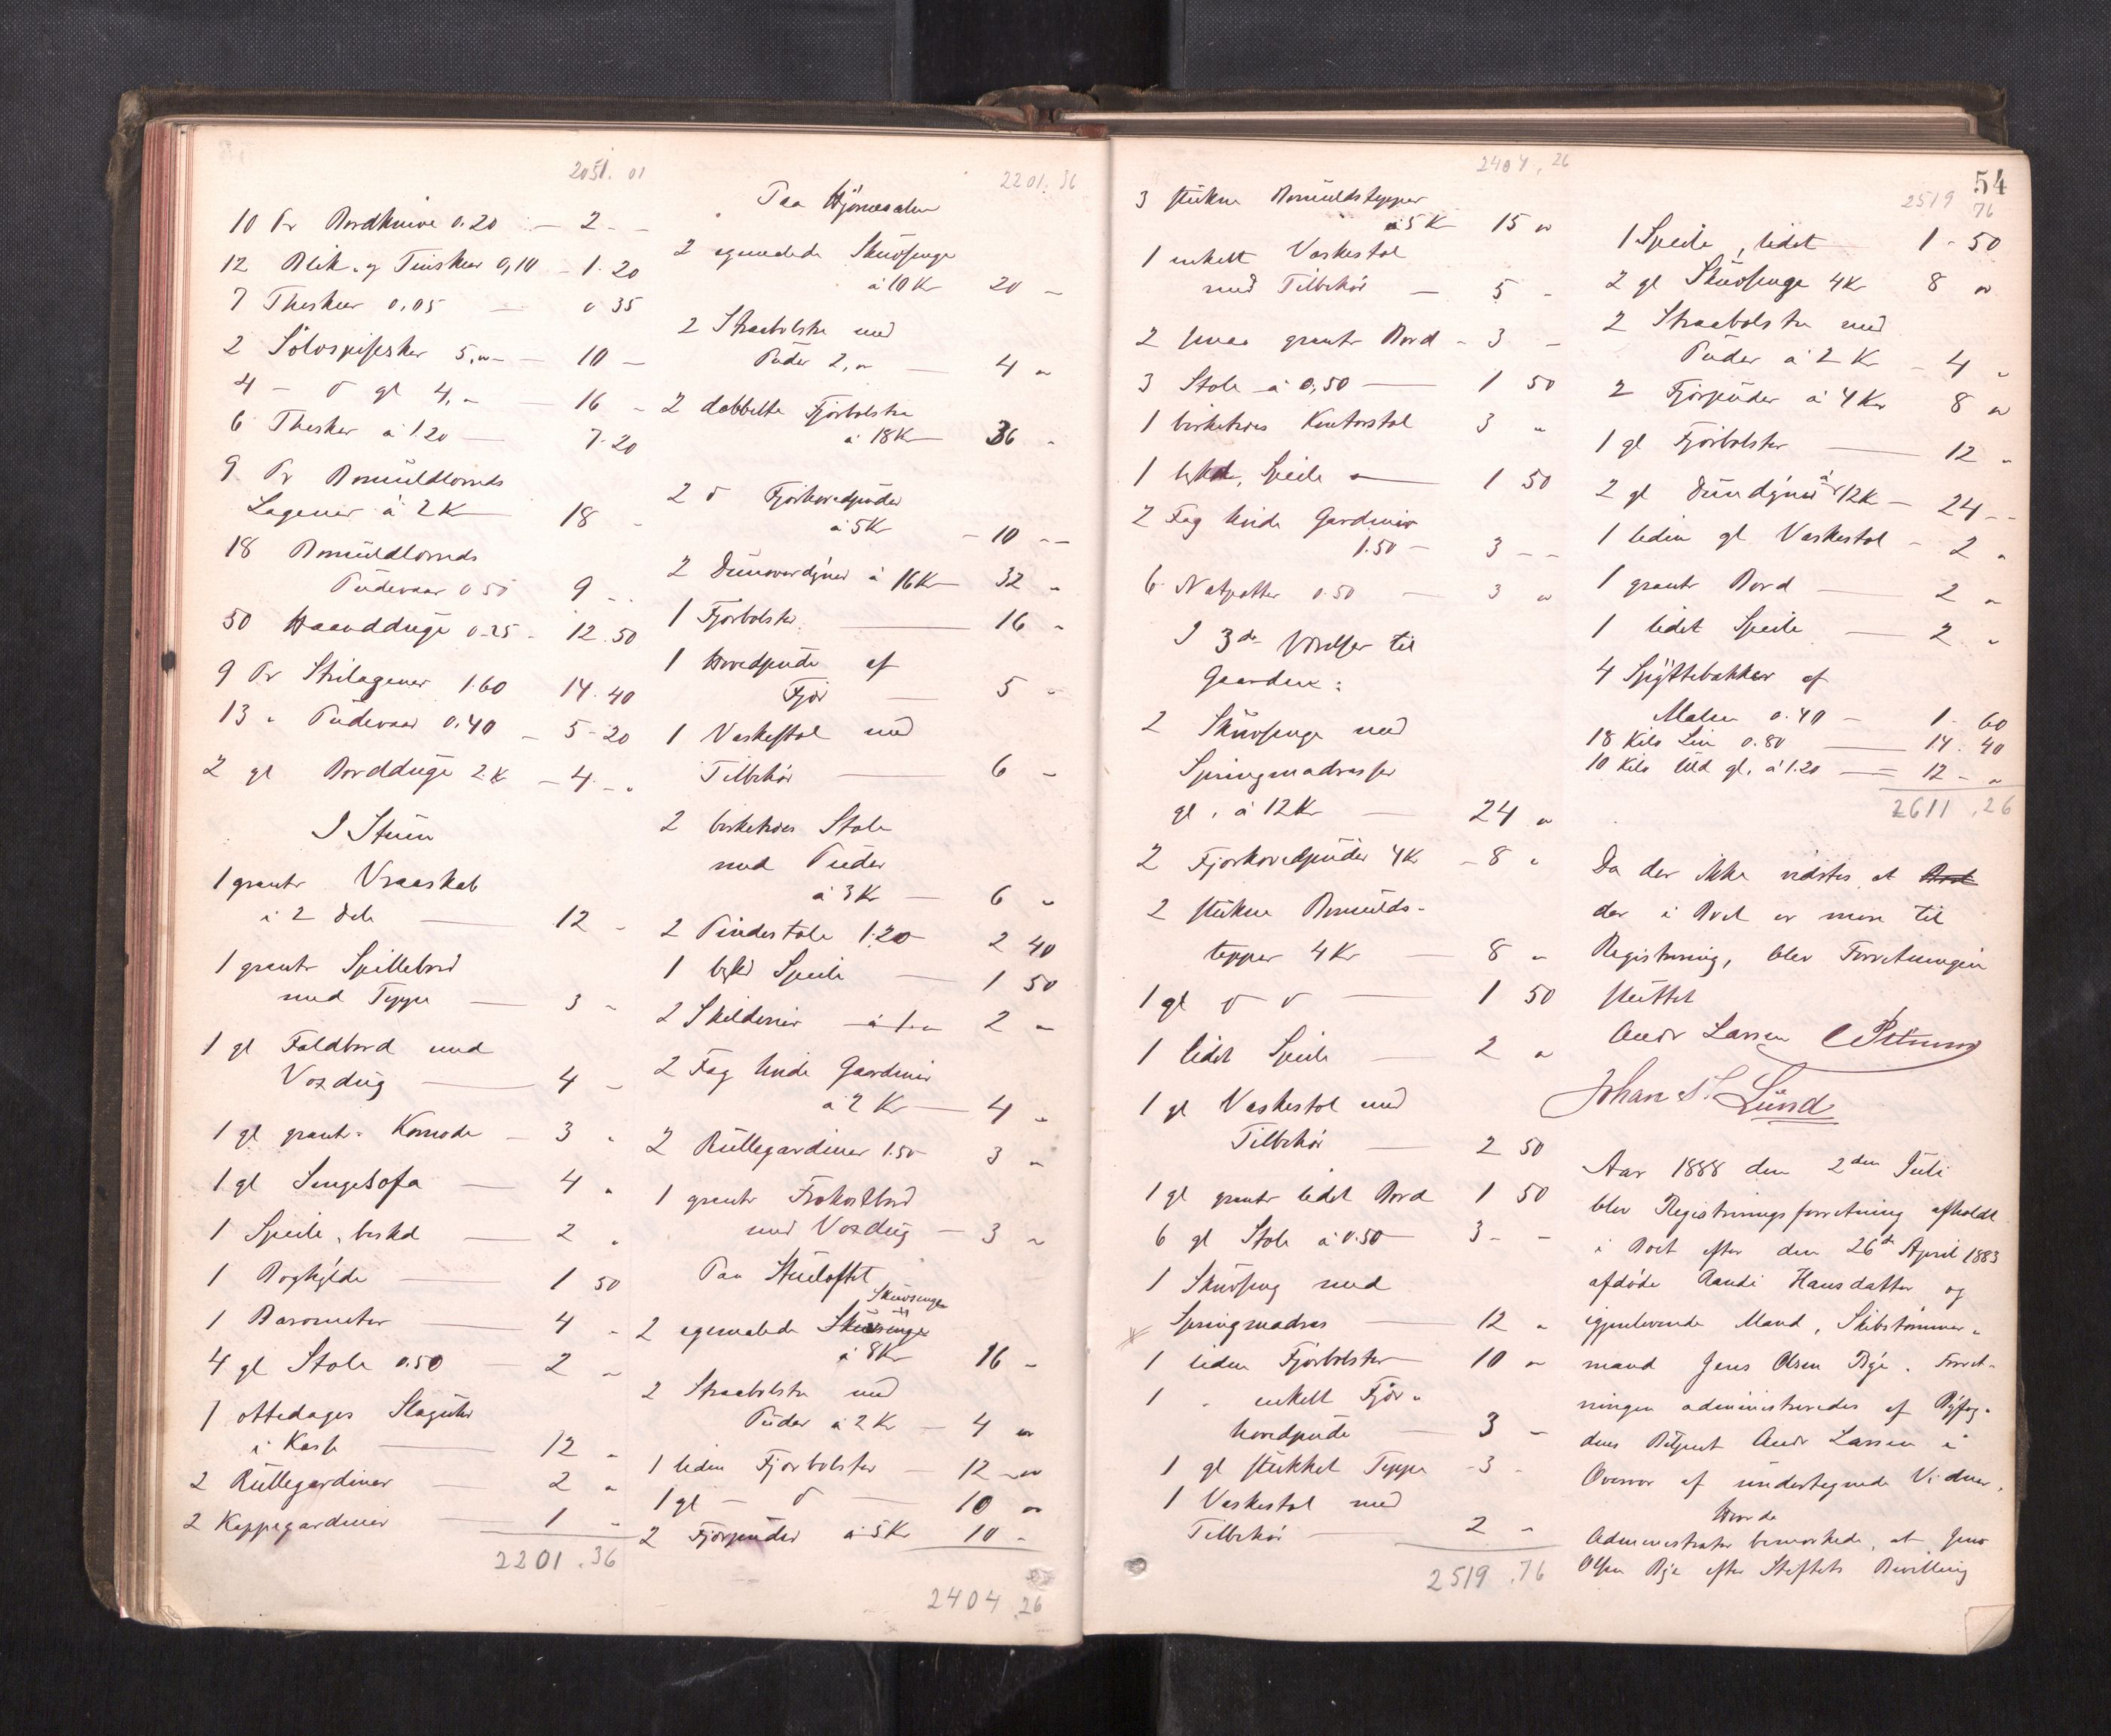 2051. 01
10 Pr Bordknive 0.20 — 2 - -
12 Blik- og Tinskeer 0,10 - 1. 20
7 Theskeer 0,05 — 0 35
2 Sölvspiseskeer 5,„ — 10 —
4 — d gl 4,„ — 16 -
6 Theskeer à 1.20 — 7. 20
9 Pr Bomuldlærreds
Lagener à 2 K — 18 -
18 Bomuldlærreds
Pudevaar 0 50 9 - -
50 Haandduge 0.25 - 12. 50
9 Pr Strilagener 1.60 14. 40
13 „ Pudevaar 0.40 - 5 - 20
2 gl Bordduge 2 K - 4 - „
I Stuen
1 grantr Vraaskab
i 2 Dele — 12 -
1 grantr Spillebord
med Teppe — 3 -
1 gl Foldbord med
Voxdug — 4 -
1 gl grantr Komode - 3 „
1 gl Sengesofa — 4 „
1 Speile, beskd — 2 „
1 Boghylde — 1 50
1 Barometer — 4 -
4 gl Stole 0.50 — 2 „
1 ottedages Slaguhr
i Kasse — 12 „
2 Rullegardiner — 2 „
2 Kappegardiner — 1 -
2201 . 36
2201. 36
Paa Hjørnesalen
2 egemalede Skuvsenge
à 10 Kr 20 -
2 Straabolstre med
Puder 2,„ — 4 „
2 dobbelte Fjørbolstre
à 18 K — 36 „
2 d Fjørhovedpuder
à 5 K - 10 - -
2 Dunoverdyner à 16 K — 32 „
1 Fjørbolster — 16 „
1 Hovedpude af
Fjør — 5 „
1 Vaskestol med
Tilbehør — 6 -
2 birketræes Stole
med Puder
à 3 Kr — 6 „
2 Pindestole 1.20 2 40
1 beskd Speile — 1 50
2 Skilderier — à 1.„ 2 „
2 Fag hvide Gardiner
à 2 Kr — 4 „
2 Rullegardiner 1.50 3 „
1 grantr Frokostbord
med Voxdug — 3 „
Paa Stueloftet
Skuvsenge
2 egemalede Skuvsenge
à 8 Kr 16 -
2 Straabolstre med
Puder à 2 Kr — 4 „
1 liden Fjørbolster — 12 - „
1 gl — d — 10 „
2 Fjørpuder à 5 Kr 10 -
2404 . 26
2404. 26
3 stukne Bomuldstepper
à 5 K 15 „
1 enkelt Vaskestol
med Tilbehør — 5 -
2 smaa grantr Bord - 3 -
3 Stole à 0,50 — 1 50
1 birketræes Kontorstol 3 „
1 beskd. Speile — 1 50
2 Fag hvide Gardiner
1.50 — 3 - -
6 Natpotter 0.50 — 3 „
I 3de Værelser til
Gaarden:
2 Skuvsenge med
Springmadrasser
gl. à 12 Kr — 24 „
2 Fjørhovedpuder 4 Kr - 8 „
2 stukne Bomulds-
tepper 4 Kr — 8 „
1 gl d d — 1 50
1 lidet Speile — 2 „
1 gl Vaskestol med
Tilbehør — 2 50
1 gl grantr lidet Bord 1 50
6 gl Stole à 0.50 3 - -
1 Skuvseng med
Springmadras — 12 „
1 liden Fjørbolster — 10 „
1 „ enkelt Fjør-
hovedpude — 3 -
1 gl stukket Teppe - 3 -
1 Vaskestol med
Tilbehør — 2 „
2519 . 76
54
2519 76
1 Speile, lidet 1 - 50
2 gl Skuvsenge 4 Kr 8 „
2 Straabolstre med
Puder à 2 Kr - 4 „
2 Fjørpuder à 4 Kr 8 „
1 gl Fjørbolster — 12 „
2 gl Dundyner à 12 K — 24 - -
1 liden gl Vaskestol - 2 „
1 grantr Bord — 2 „
1 lidet Speile — 2 „
4 Spyttebakker af
Malm 0.40 — 1 - 60
18 Kilo Lin 0.80 — 14. 40
10 Kilo Uld gl. à 1.20 — 12 - „
2611 . 26
Da der ikke vidstes at Boet
der i Boet er mere til
Registrering, blev Forretningen
sluttet
Andr Larsen
Johan S. Lund
Aar 1888 den 2den Juli
blev Registreringsforretning afholdt
i Boet efter den 26de April 1883
afdøde Randi Hansdatter og
igjenlevende Mand, Skibstømmer-
mand Jens Olsen Bye. Forret-
ningen administreredes af Byfog-
dens Betjent Andr Larsen i
Overvær af undertegnede Vidner.
Hvorda
Administrator bemærkede, at Jens
Olsen Bye efter Stiftets Bevilling